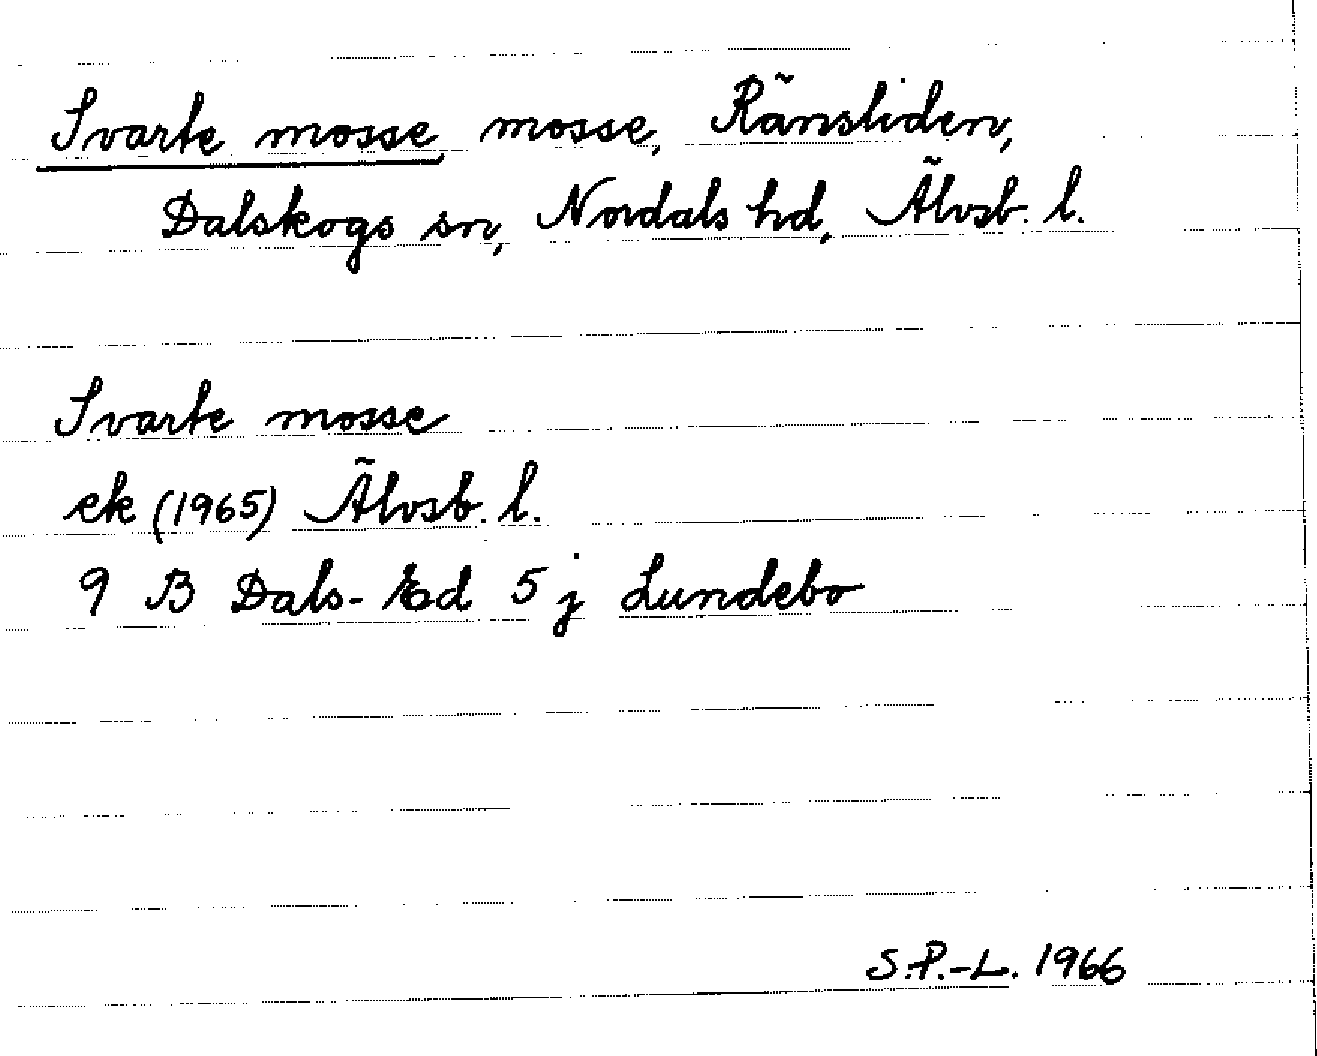 Svarte mosse mosse, Ränsliden,
Dalskogs sn, Nordals hd, Älvsb. l.
Svarte mosse
ek (1965) Älvsb. l.
9 B Dals-Ed 5 j Lundebo
S.P.-L. 1966